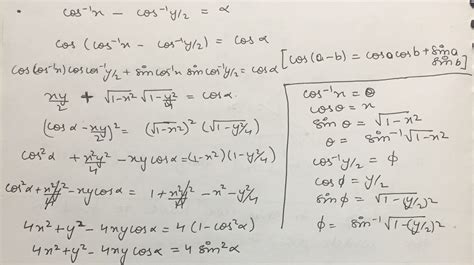 • cos⁻¹x − cos⁻¹y/2 = α
cos (cos⁻¹x − cos⁻¹y/2) = cosα
[cos(a−b) = cosa cosb + sina sinb]
cos(cos⁻¹x) cos cos⁻¹y/2 + sin cos⁻¹x sin cos⁻¹y/2 = cosα
xy/2 + √1−x² √1−y²/4 = cosα
(cosα − xy/2)² = (√1−x²)² (√1−y²/4)
cos²α + x²y²/4 − xy cosα = (1−x²)(1−y²/4)
cos²α + x²y²/4 − xy cosα = 1 + x²y²/4 − x² − y²/4
4x² + y² − 4xy cosα = 4 (1−cos²α)
4x² + y² − 4xy cosα = 4 sin²α
cos⁻¹x = θ
cosθ = x
sinθ = √1−x²
θ = sin⁻¹√1−x²
cos⁻¹y/2 = ϕ
cosϕ = y/2
sinϕ = √1−(y/2)²
ϕ = sin⁻¹√1−(y/2)²